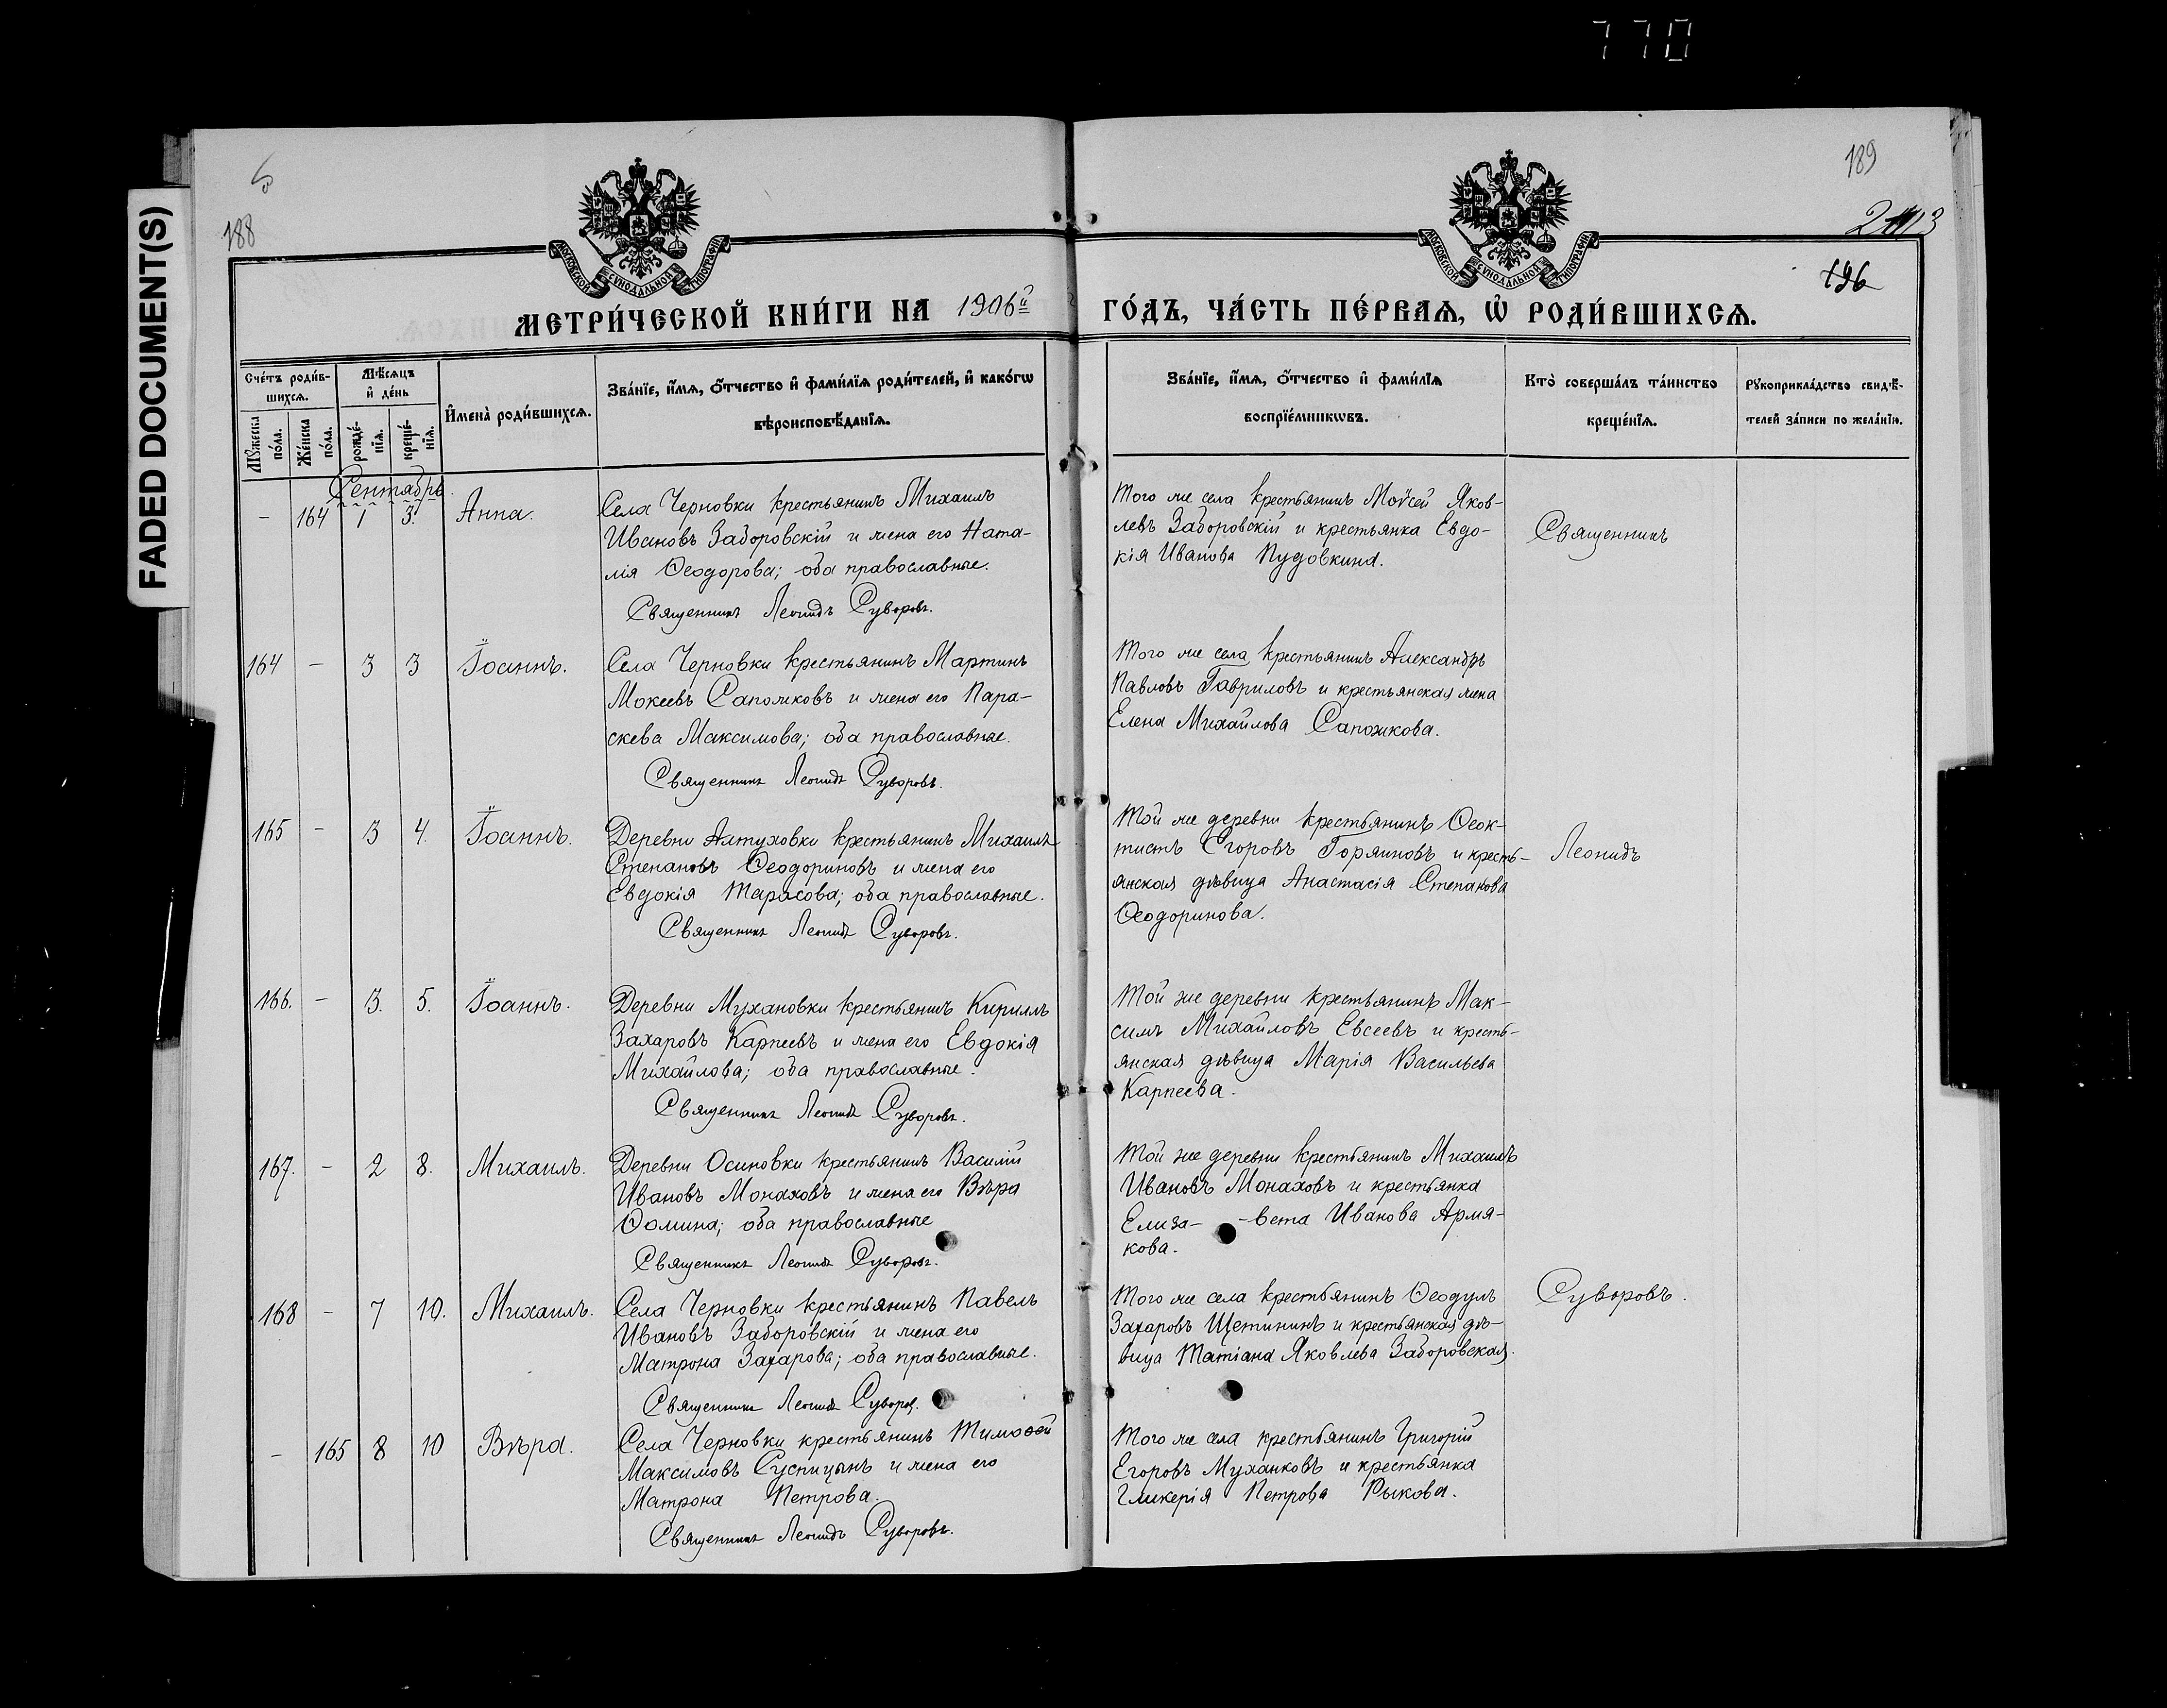 770
FADED DOCUMENT(S)
188
189
196
МОСКОВСКОЙ СѴНОДАЛЬНОЙ ТИПОГРАФІИ
МОСКОВСКОЙ СѴНОДАЛЬНОЙ ТИПОГРАФІИ
МЕТРИ́ЧЕСКОЙ КНИ́ГИ НА 1906й ГО́ДЪ, ЧА́СТЬ ПЕ́РВАѦ, Ѡ҆ РОДИ́ВШИХСѦ.
Сче́тъ роди́в-
шихсѧ.
Мѣ́сяцъ
и҆ де́нь
Мꙋ́жеска по́ла.
Же́нска по́ла.
рожде́-
нїѧ.
креще́-
нїѧ.
И҆мена̀ роди́вшихсѧ.
Зва́нїе, и҆́мѧ, ѻ҆́тчество и҆ фамѝлїѧ роди́телей, и҆ како́гѡ
вѣроисповѣ́данїѧ.
Зва́нїе, и҆́мѧ, ѻ҆́тчество и҆ фамѝлїѧ
воспрїе́мникѡвъ.
Кто̀ соверша́лъ та́инство
креще́нїѧ.
Рꙋкоприкла́дство свидѣ́-
телей за́писи по жела́нїю.
Сентябрь.
- 164 1 3. Анна.
Села Черновки крестьянинъ Михаилъ
Ивановъ Заборовскій и жена его Ната-
лія Ѳеодорова; оба православные.
Священникъ Леонидъ Суворовъ.
Того же села крестьянинъ Моѵсей Яков-
левъ Заборовскій и крестьянка Евдо-
кія Иванова Пудовкина.
Священникъ
164 - 3 3 Іоаннъ.
Села Черновки крестьянинъ Мартинъ
Мокеевъ Сапожковъ и жена его Пара-
скева Максимова; оба православные.
Священникъ Леонидъ Суворовъ.
Того же села крестьянинъ Александръ
Павловъ Гавриловъ и крестьянская жена
Елена Михайлова Сапожкова.
165 - 3 4. Іоаннъ.
Деревни Алтуховки крестьянинъ Михаилъ
Степановъ Ѳеодориновъ и жена его
Евдокія Тарасова; оба православные.
Священникъ Леонидъ Суворовъ.
Той же деревни крестьянинъ Ѳеок-
тистъ Егоровъ Горяиновъ и кресть-
янская дѣвица Анастасія Степанова
Ѳеодоринова.
Леонидъ
166. - 3. 5. Іоаннъ.
Деревни Мухановки крестьянинъ Кириллъ
Захаровъ Карпеевъ и жена его Евдокія
Михайлова; оба православные.
Священникъ Леонидъ Суворовъ.
Той же деревни крестьянинъ Мак-
симъ Михайловъ Евсеевъ и кресть-
янская дѣвица Марія Васильева
Карпеева.
167. - 2 8. Михаилъ.
Деревни Осиновки крестьянинъ Василій
Ивановъ Монаховъ и жена его Вѣра
Ѳомина; оба православные
Священникъ Леонидъ Суворовъ.
Той же деревни крестьянинъ Михаилъ
Ивановъ Монаховъ и крестьянка
Елиза- -вета Иванова Армя-
кова.
168 - 7 10. Михаилъ.
Села Черновки крестьянинъ Павелъ
Ивановъ Заборовскій и жена его
Матрона Захарова; оба православные.
Священникъ Леонидъ Суворовъ.
Того же села крестьянинъ Ѳеодулъ
Захаровъ Щетининъ и крестьянская дѣ-
вица Татіана Яковлева Заборовская.
Суворовъ.
- 165 8 10 Вѣра.
Села Черновки крестьянинъ Тимоѳей
Максимовъ Суспицынъ и жена его
Матрона Петрова.
Священникъ Леонидъ Суворовъ.
Того же села крестьянинъ Григорій
Егоровъ Муханковъ и крестьянка
Гликерія Петрова Рыкова.